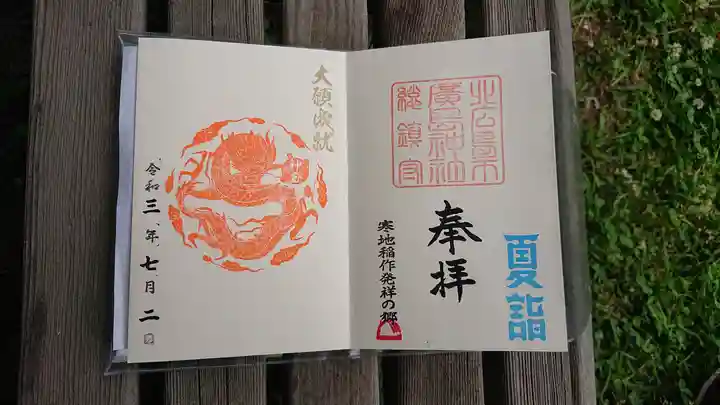 夏詣
北広島市
廣島神社
総鎮守
奉拝
寒地稲作発祥の郷
大願成就
令和三年七月二日